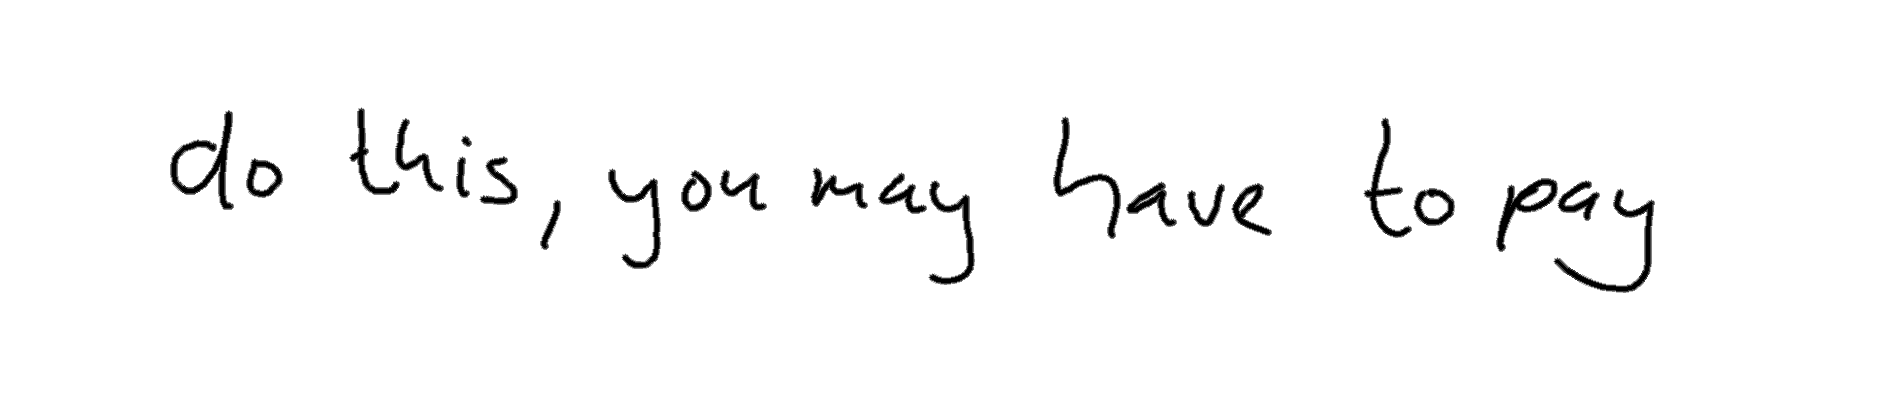 do this, you may have to pay